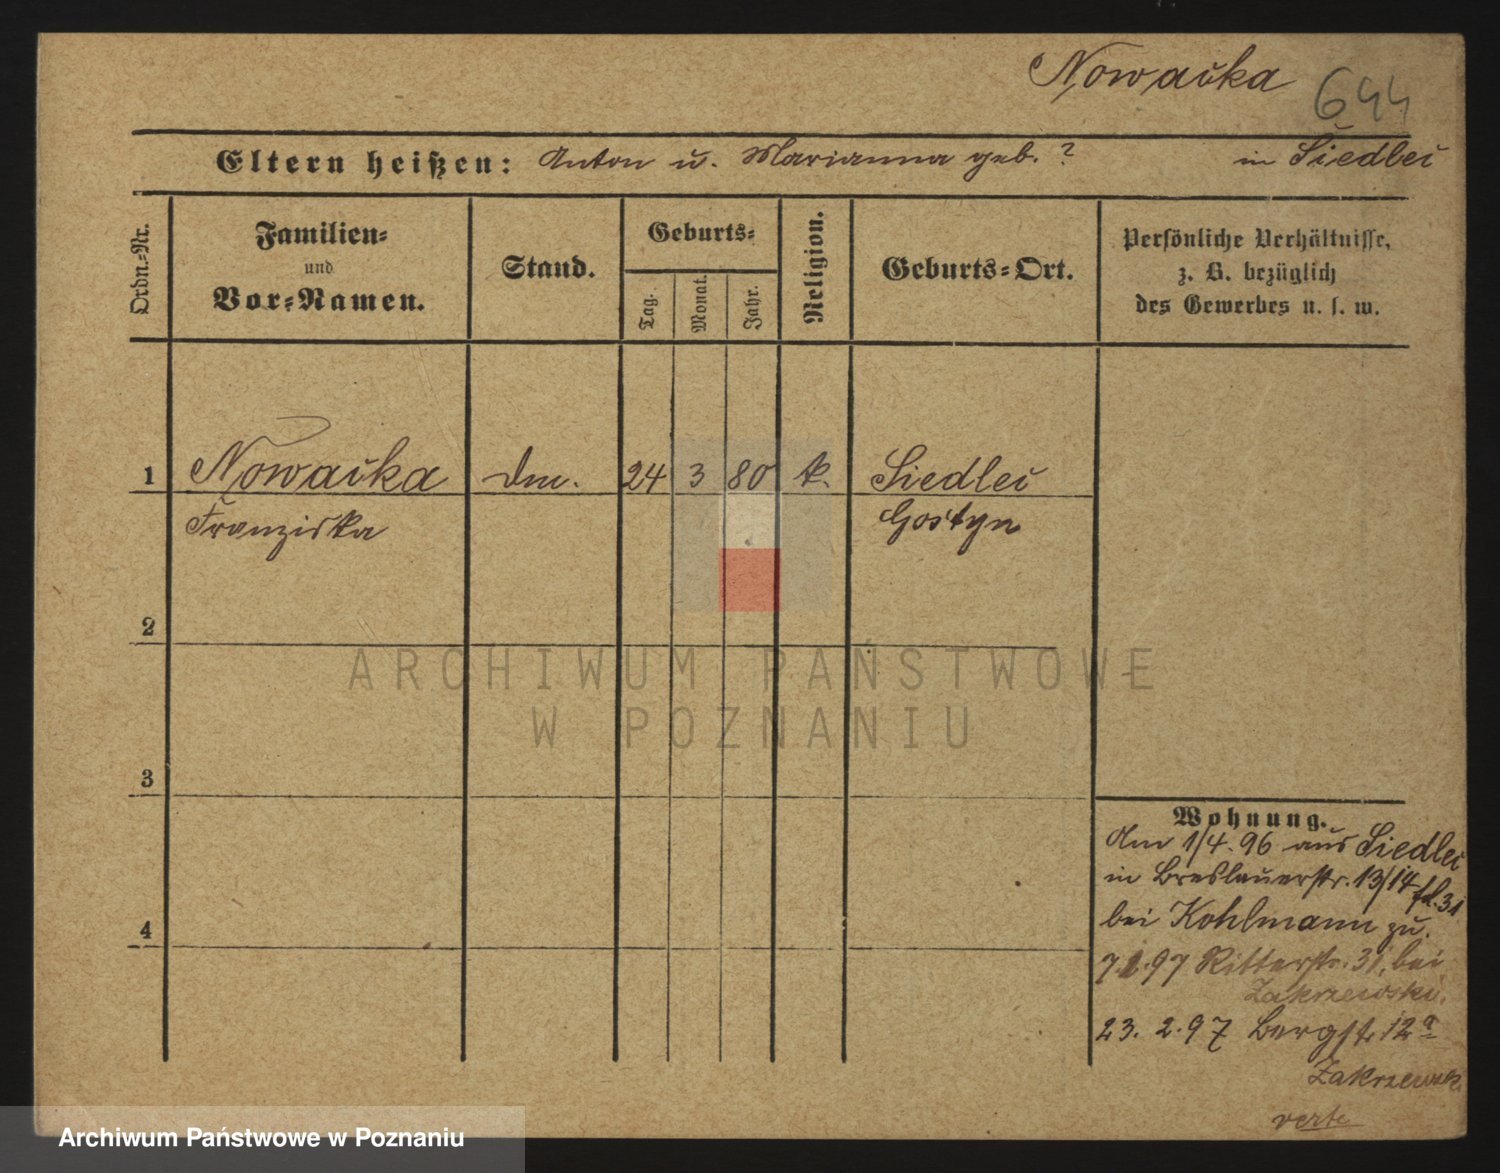 Nowacka
644
Eltern heißen: Anton u. Marianna geb. ? in Siedlec
Ordn.-Nr.
Familien- und Vor-Namen.
Stand.
Geburts-
Tag.
Monat.
Jahr.
Religion.
Geburts-Ort.
Persönliche Verhältnisse,
z. B. bezüglich
des Gewerbes u. s. w.
1 Nowacka Dm. 24 3 80 k. Siedlec
Franziska Gostyn
2
ARCHIWUM PAŃSTWOWE
W POZNANIU
3
4
Wohnung.
Am 1/4. 96 aus Siedlec
in Breslauerstr. 13/14
bei Kohlmann zu.
7.1.97 Ritterstr. 31, bei
Zakrzewski.
23. 2. 97 Bergstr. 12a
Zakrzewski
verte
Archiwum Państwowe w Poznaniu